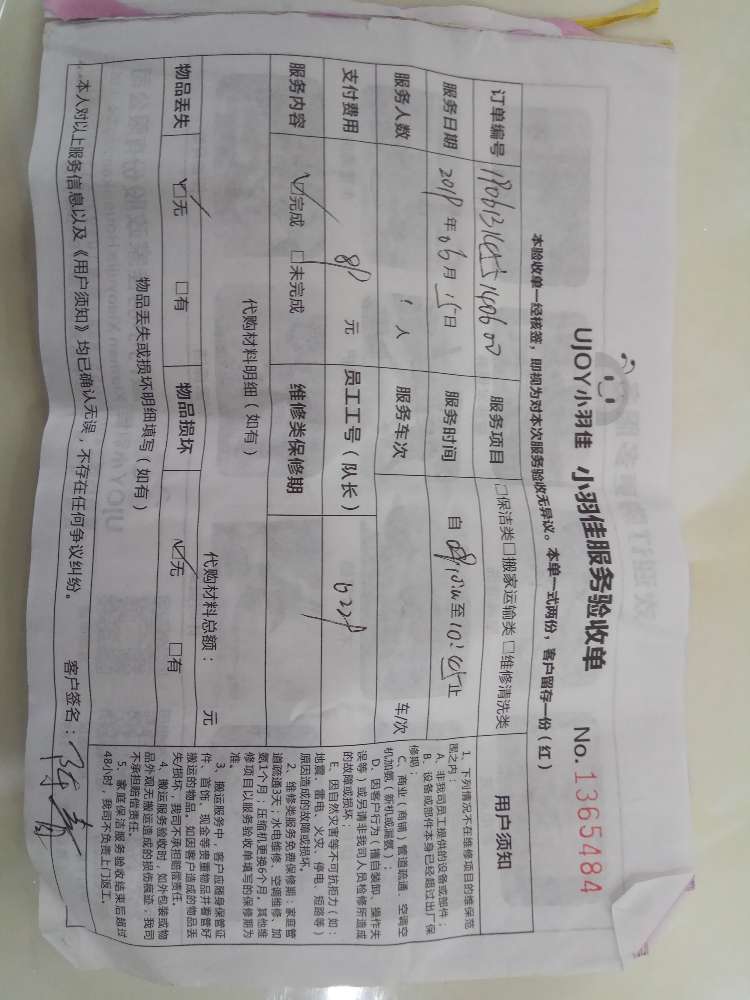 UJOY小羽佳 小羽佳服务验收单 No. 1365484
本验收单一经核签，即视为对本次服务验收无异议。本单一式两份，客户留存一份（红）
订单编号
服务项目 □保洁类□搬家运输类 □维修清洗类
服务日期 2018年06月15日
服务时间 自 至10:45止
服务人数 1人
服务车次 车/次
支付费用 元
员工工号（队长）
服务内容 ☑完成 □未完成
维修类保修期
代购材料明细（如有）
代购材料总额： 元
物品丢失 ☑无 □有
物品损坏 ☑无 □有
物品丢失或损坏明细填写（如有）
用户须知
1、下列情况不在维修项目的维保范
围之内：
A、非我司员工提供的设备或部件；
B、设备或部件本身已经超过出厂保
修期；
C、商业（商铺）管道疏通、空调空
机加氨（新机或漏氨）；
D、因客户行为（擅自装卸、操作失
误等）或另请非我司人员检修所造成
的故障或损坏
E、因自然灾害等不可抗拒力（如：
地震、雷电、火灾、停电、短路等）
原因造成的故障或损坏。
2、维修类服务免费保修期：家庭管
道疏通3天；水电维修、空调维修、加
氨1个月；压缩机更换6个月，其他维
修项目以服务验收单填写的保修期为
准。
3、搬运服务中，客户应随身保管证
件、首饰、现金等贵重物品并看管好
搬运的物品。如因客户造成的物品丢
失/损坏，我司不承担赔偿责任。
4、搬运服务验收时，如外包装或物
品外观无搬运造成的损伤痕迹，我司
不承担赔偿责任。
5、家庭保洁服务验收结束后超过
48小时，我司不负责上门返工。
本人对以上服务信息以及《用户须知》均已确认无误，不存在任何争议纠纷。 客户签名：